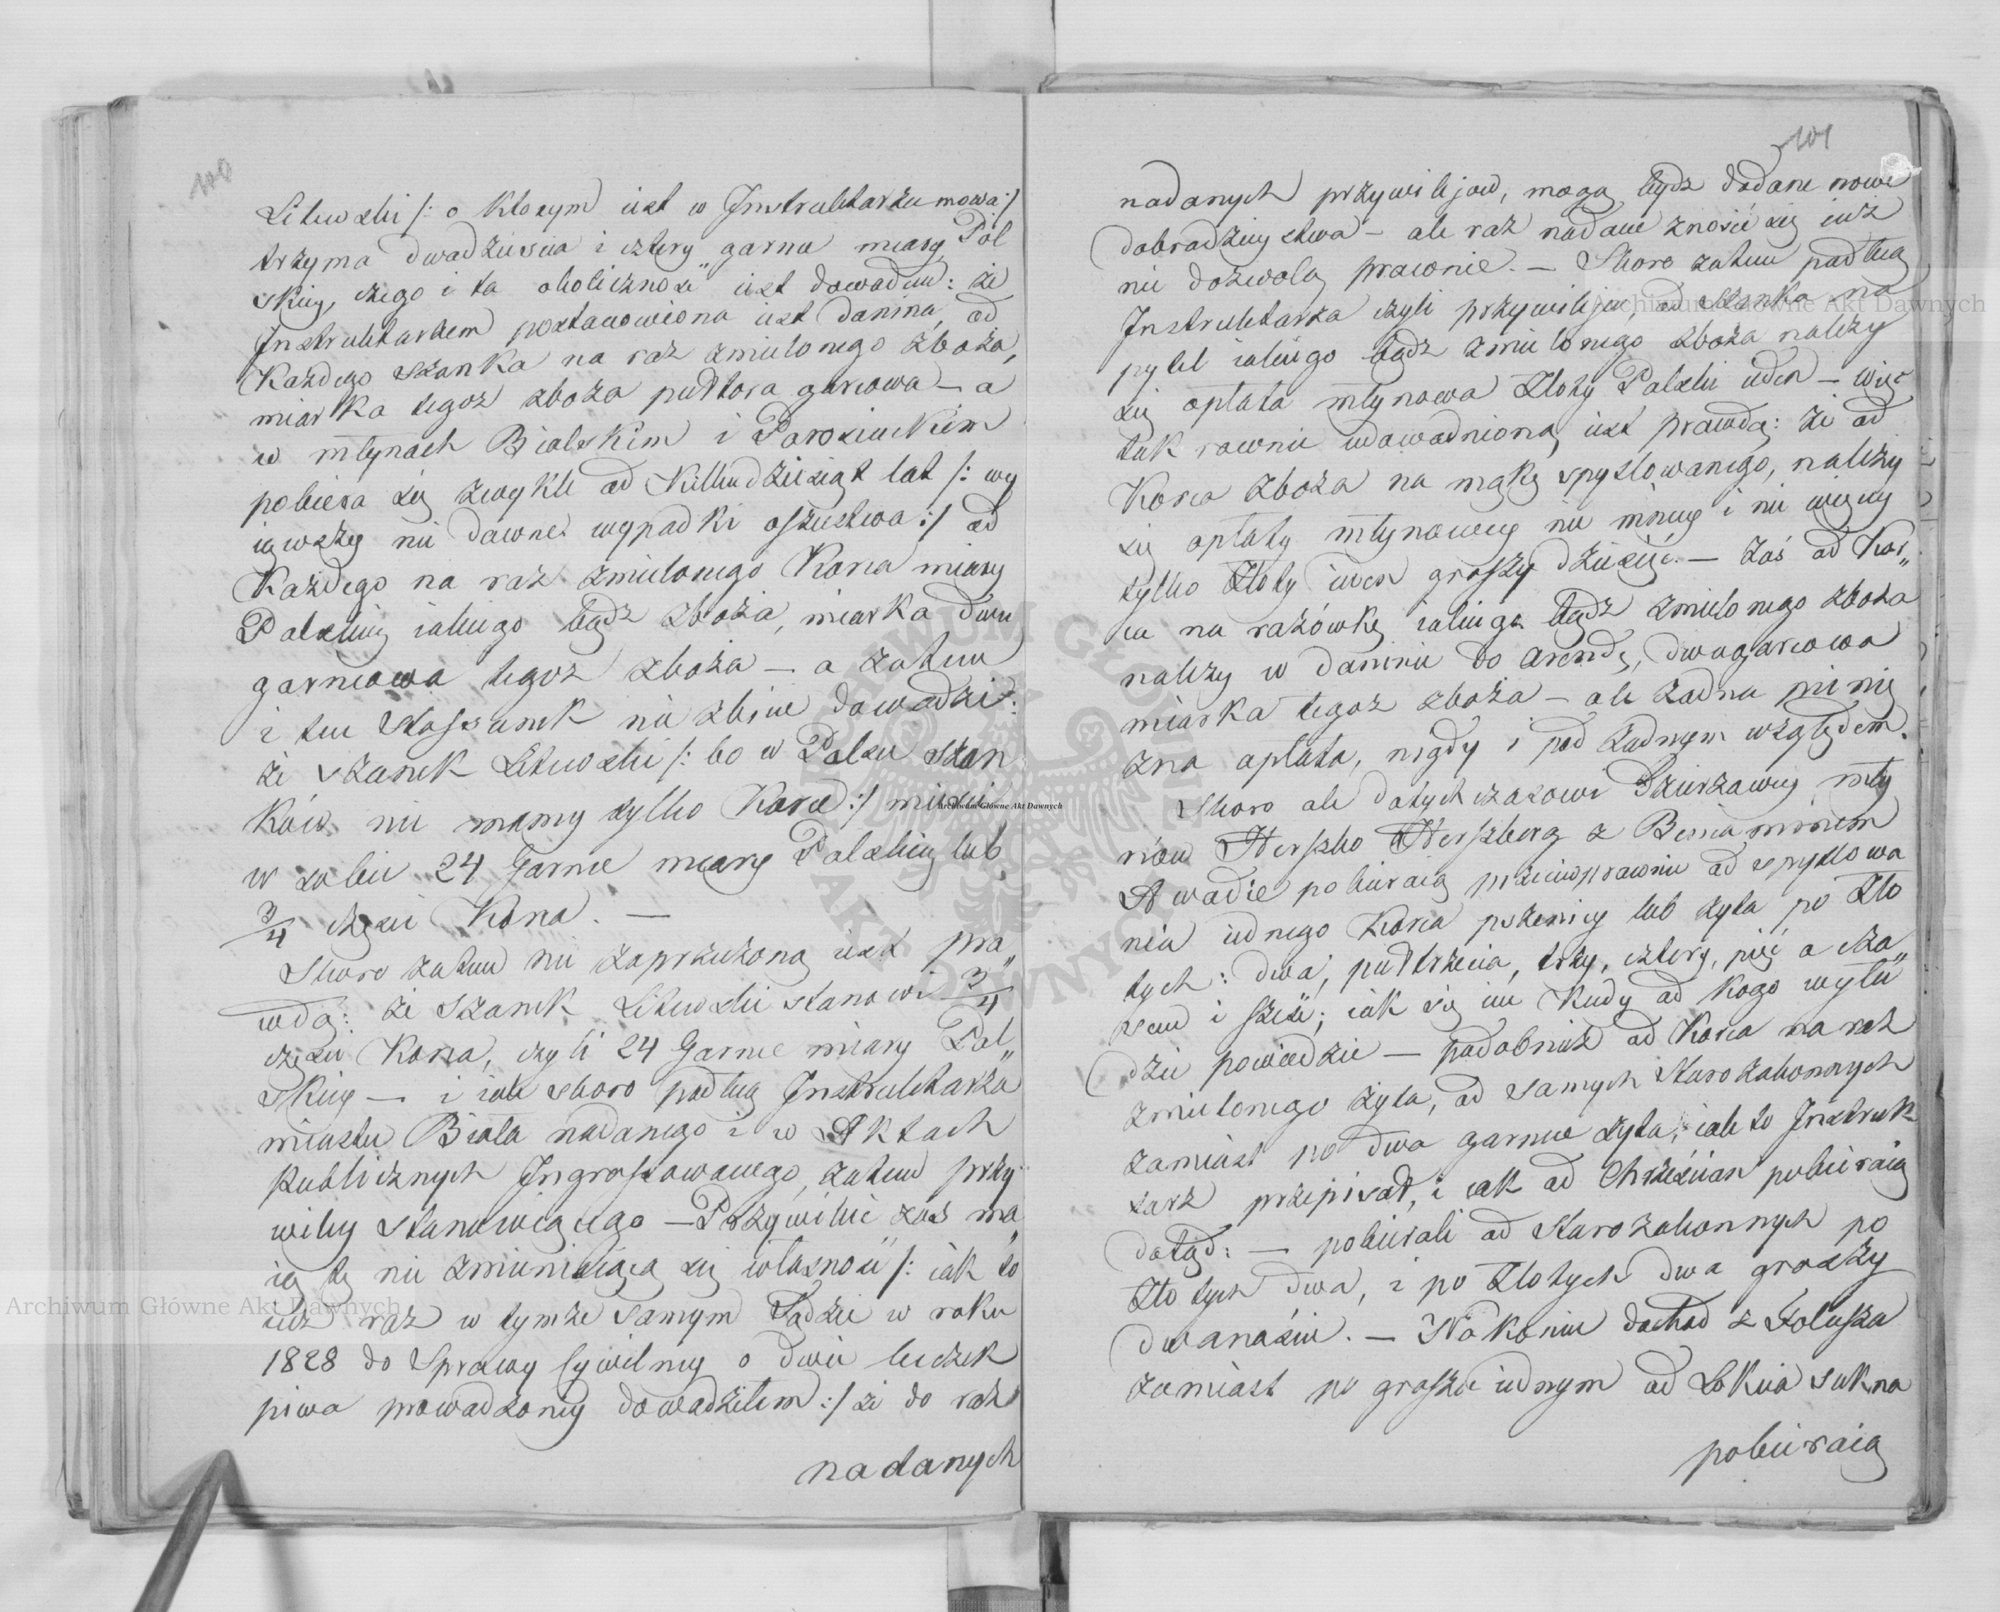 100
Litewski /: o którym iest w Instruktarzu mowa :/
trzyma dwadzieścia i cztery garncy miary Pol
skiey, czego i ta okoliczność iest dowodem: że
Instruktarzem postanowiona iest danina, od
Każdego szanka na raz zmielonego zboża,
miarka tegoż zboża półtora garcowa — a
w młynach Bialskim i Porosiuckim
pobiera się zwykle od Kilkudziesiąt lat /: wy
iąwszy nie dawne wypadki oszustwa :/ od
Każdego na raz zmielonego Korca miary
Polskiey iakiego bądź zboża, miarka dwu
garncowa tegoż zboża — a zatem
i ten Stossunek nie zbicie dowodzi:
że szanek Litewski /: bo w Polsce szan
ków nie mamy tylko Korce :/ mieści
w sobie 24 Garnce miary Polskiey lub
3/4 części Korca. —
Skoro zatem nie zaprzeczoną iest pra„
wdą: że szanek Litewski stanowi 3/4
części Korca, czyli 24 Garnce miary Pol„
skiey — i iak skoro podług Instruktarza
miastu Biała nadanego i w Aktach
Publicznych Ingrossowanego, zatem przy
wiley stanowiącego — Przywileie zaś ma„
ią tę nie zmienialącą się własność /: iak to
iuż raz w tymże samym Sądzie w roku
1828 do Sprawy Cywilney o dwie beczek
piwa prowadzoney dowodziłem :/ że do raz
nadanych
101
nadanych przywilejow, mogą bydz dodane nowe
dobrodzieystwa — ale raz nadane znosić się iuż
nie dozwolą prawnie. — Skoro zatem podług
Instruktarza czyli przywileju, od szanka na
pytel iakiego bądz zmielonego zboża należy
się opłata młynowa Złoty Polski ieden — więc
tak rownie udowodnioną iest prawdą: że od
Korca zboża na mąkę spytlowanego, należy
się opłaty młynowey nie mniey i nie więcey
tylko Złoty ieden groszy dziesięć. — Zaś od Kor„
ca na razówkę iakiego bądz zmielonego zboża
należy w daninie do arendy, dwugarcowa
miarka tegoż zboża — ale żadna pienię
żna opłata, nigdy i pod żadnym względem.
Skoro ale dotychczasowi Dzierzawcy mły
nów Herszko Herszberg z Beniaminem
Awadie pobieraią przeciwprawnie od spytlowa
nia iednego Korca pszenicy lub żyta po Zło
tych: dwa, półtrzecia, trzy, cztery, pięć a cza„
sem i sześć; iak się im Kiedy od kogo wyłu
dzić powiedzie — podobnież od Korca na raz
zmielonego żyta, od samych Starozakonnych
zamiast po dwa garnce żyta, iak to Instruk
tarz przepisał, i iak od Chrześcian pobieraią
dotąd: — pobierali od Starozakonnych po
Złotych dwa, i po Złotych dwa groszy
dwanaście. — Nakoniec dochod z Folusza
zamiast po groszu iednym od Łokcia sukna
pobieraią
Archiwum Główne Akt Dawnych
Archiwum Główne Akt Dawnych
Archiwum Główne Akt Dawnych
ARCHIWUM GŁÓWNE AKT DAWNYCH